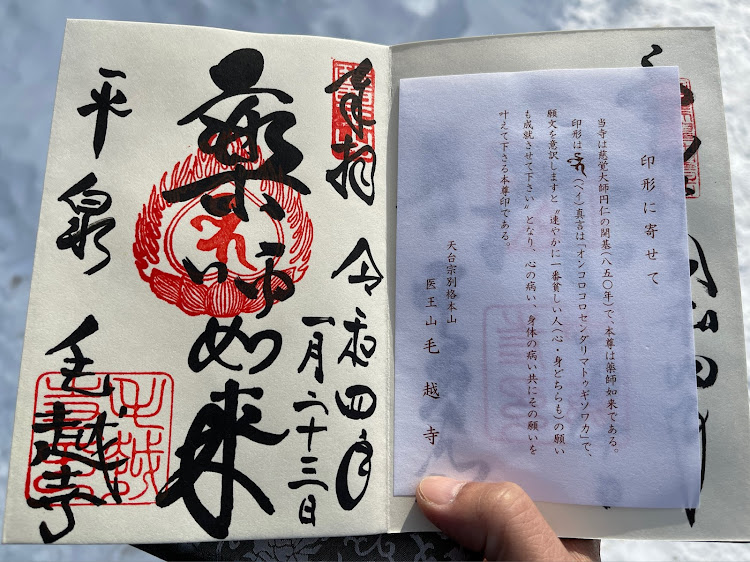 印形に寄せて
当寺は慈覚大師円仁の開基(八五〇年)で、本尊は薬師如来である。
印形は(ベイ)真言は「オンコロコロセンダリマトゥギソワカ」で、
願文を意訳しますと〝速やかに一番貧しい人(心・身どちらも)の願い
も成就させて下さい〟となり、心の病い、身体の病い共にその願いを
叶えて下さる本尊印である。
天台宗別格本山
医王山 毛越寺
奉拝 令和四年
一月二十三日
薬師如来
平泉 毛越寺